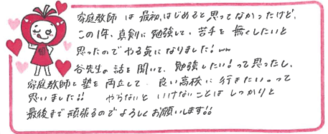 家庭教師は最初はじめると思ってなかったけど、
この1年、真剣に勉強して、苦手を無くしたいと
思ったのでやる気になりました!
谷先生の話を聞いて、勉強したい!って思ったし、
家庭教師と塾を両立して、良い高校に行きたいって
思いました!! やらないといけないことはしっかりと
最後まで頑張るのでよろしくお願いします!!